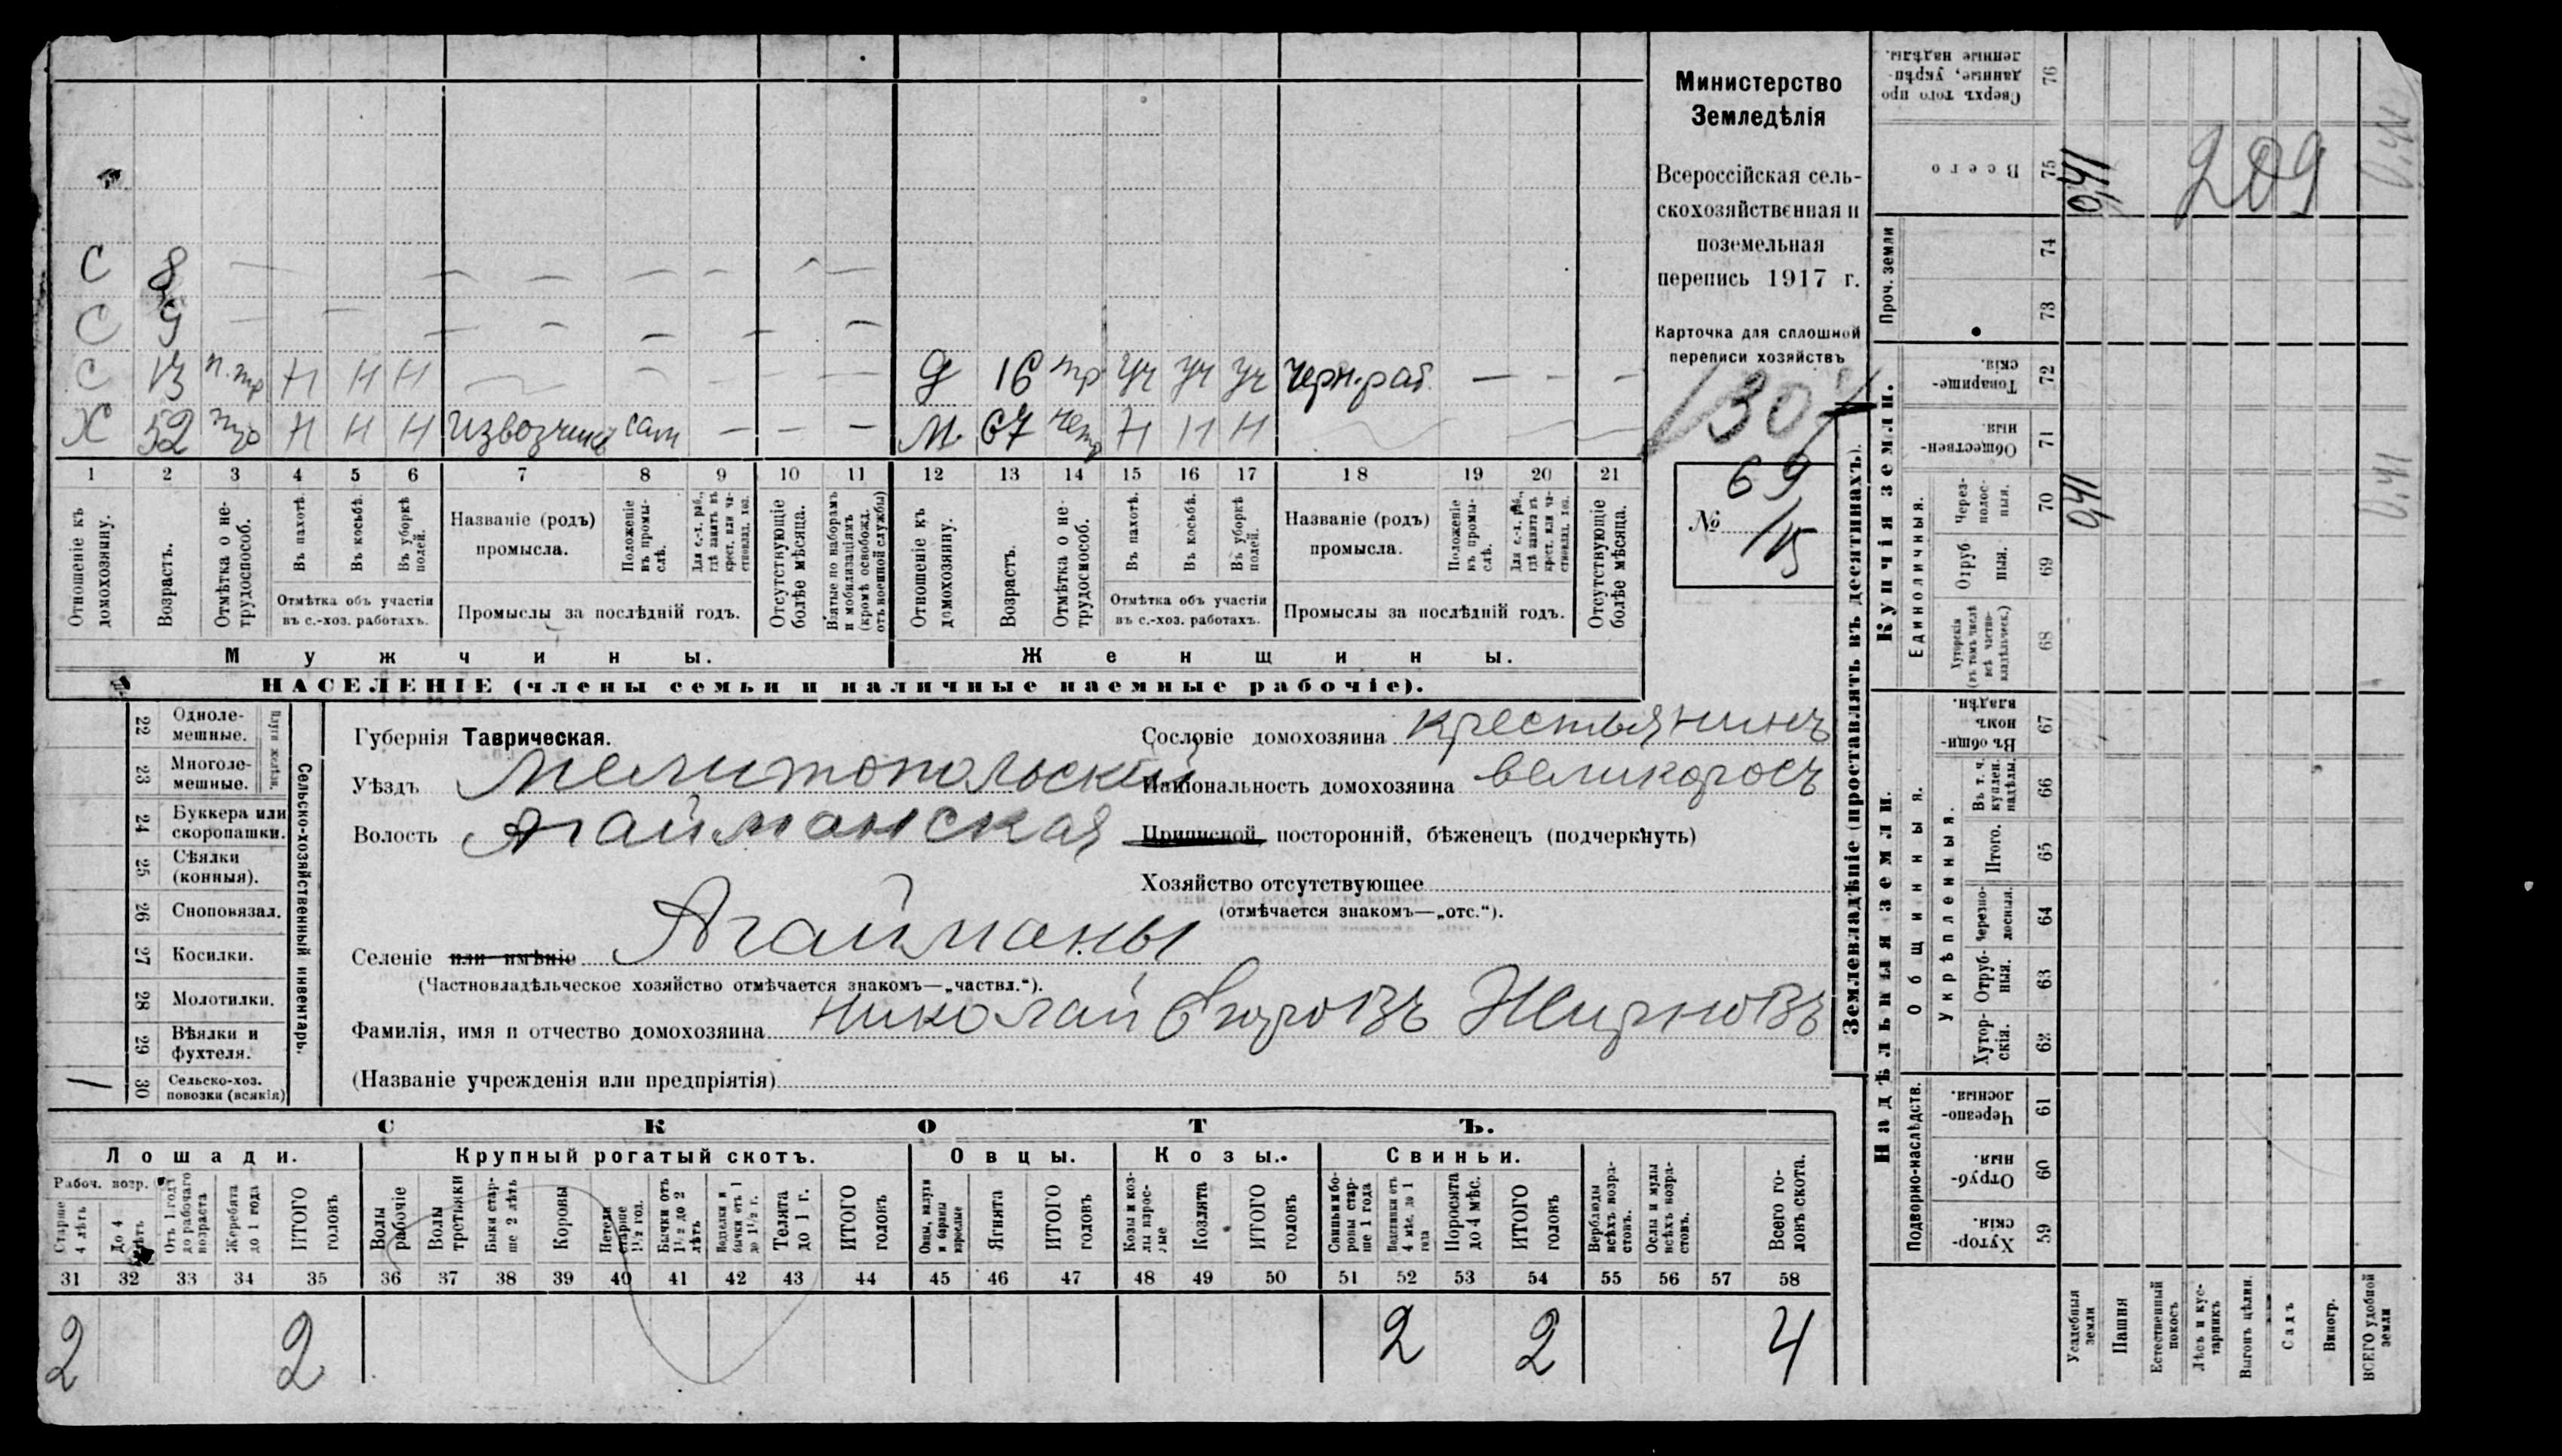 С 8 — — — — — — —
С 9 — — — — — — —
С 13 п.тр Н Н Н — — — — — Д 16 тр уч уч уч черн.раб. — — —
Х 52 тр Н Н Н извозчикъ сам — — — М. 67 нетр Н Н Н —
1 2 3 4 5 6 7 8 9 10 11 12 13 14 15 16 17 18 19 20 21
Отношеніе къ домохозяину.
Возрастъ.
Отмѣтка о нетрудоспособ.
Въ пахотѣ.
Въ косьбѣ.
Въ уборкѣ полей.
Отмѣтка объ участіи
въ с.-хоз. работахъ.
Названіе (родъ)
промысла.
Положеніе въ промыслѣ.
Для с.-х. раб., гдѣ занятъ въ крест. или частновлад. хоз.
Промыслы за послѣдній годъ.
Отсутствующіе болѣе мѣсяца.
Взятые по наборамъ и мобилизаціямъ (кромѣ освобожд. отъ военной службы)
Отношеніе къ домохозяину.
Возрастъ.
Отмѣтка о нетрудоспособ.
Въ пахотѣ.
Въ косьбѣ.
Въ уборкѣ полей.
Отмѣтка объ участіи
въ с.-хоз. работахъ.
Названіе (родъ)
промысла.
Положеніе въ промыслѣ.
Для с.-х. раб., гдѣ занята въ крест. или частновлад. хоз.
Промыслы за послѣдній годъ.
Отсутствующіе болѣе мѣсяца.
Мужчины. Женщины.
НАСЕЛЕНІЕ (члены семьи и наличные наемные рабочіе).
Министерство
Земледѣлія
Всероссійская сель-
скохозяйственная и
поземельная
перепись 1917 г.
Карточка для сплошной
переписи хозяйствъ
130
№ 69/15
22 Одноле-
мешные.
23 Многоле-
мешные.
Плуги желѣзн.
24 Буккера или
скоропашки.
25 Сѣялки
(конныя).
26 Сноповязал.
27 Косилки.
28 Молотилки.
29 Вѣялки и
фухтеля.
1 30 Сельско-хоз.
повозки (всякія)
Сельско-хозяйственный инвентарь.
Губернія Таврическая.
Уѣздъ Мелитопольскій
Волость Агайманская
Селеніе или имѣніе Агайманы
(Частновладѣльческое хозяйство отмѣчается знакомъ—„частвл.“).
Сословіе домохозяина крестьянинъ
Національность домохозяина великоросъ
Приписной, посторонній, бѣженецъ (подчеркнуть)
Хозяйство отсутствующее
(отмѣчается знакомъ—„отс.“).
Фамилія, имя и отчество домохозяина Николай Егоровъ Жирновъ
(Названіе учрежденія или предпріятія)
СКОТЪ.
Лошади. Крупный рогатый скотъ. Овцы. Козы. Свиньи.
Рабоч. возр.
Старше 4 лѣтъ
До 4 лѣтъ
Отъ 1 года до рабочаго возраста
Жеребята до 1 года
ИТОГО головъ
Волы рабочіе
Волы третьяки
Быки старше 2 лѣтъ
Коровы
Нетели старше 1½ год.
Бычки отъ 1½ до 2 лѣтъ
Подтелки и бычки отъ 1 до 1½ г.
Телята до 1 г.
ИТОГО головъ
Овцы, валухи и бараны взрослые
Ягнята
ИТОГО головъ
Козы и козлы взрослые
Козлята
ИТОГО головъ
Свиньи и боровы старше 1 года
Подсвинки отъ 4 мѣс. до 1 года
Поросята до 4 мѣс.
ИТОГО головъ
Верблюды всѣхъ возрастовъ.
Ослы и мулы всѣхъ возрастовъ.
Всего головъ скота.
31 32 33 34 35 36 37 38 39 40 41 42 43 44 45 46 47 48 49 50 51 52 53 54 55 56 57 58
2 2 2 2 4
Землевладѣніе (проставлять въ десятинахъ).
Сверхъ того проданные, укрѣпленные надѣлы. 76
Всего 75 0,41 209 0,41
Проч. земли 74
73
Купчія земли.
Товарищескія. 72
Общественныя. 71
Единоличныя.
Чрезполосныя. 70 0,41 0,41
Отрубныя. 69
Хуторскія (въ томъ числѣ всѣ частновладѣльческ.) 68
Надѣльныя земли.
Общинныя.
Въ общинномъ владѣн. 67
Укрѣпленныя.
Въ т. ч. куплен. надѣлы. 66
Итого. 65
Черезполосныя. 64
Отрубныя. 63
Хуторскія. 62
Подворно-наслѣдств.
Черезполосныя. 61
Отрубныя. 60
Хуторскія. 59
Усадебныя земли
Пашня
Естественный покосъ
Лѣсъ и кустарникъ
Выгонъ цѣлин.
Садъ
Виногр.
ВСЕГО удобной земли